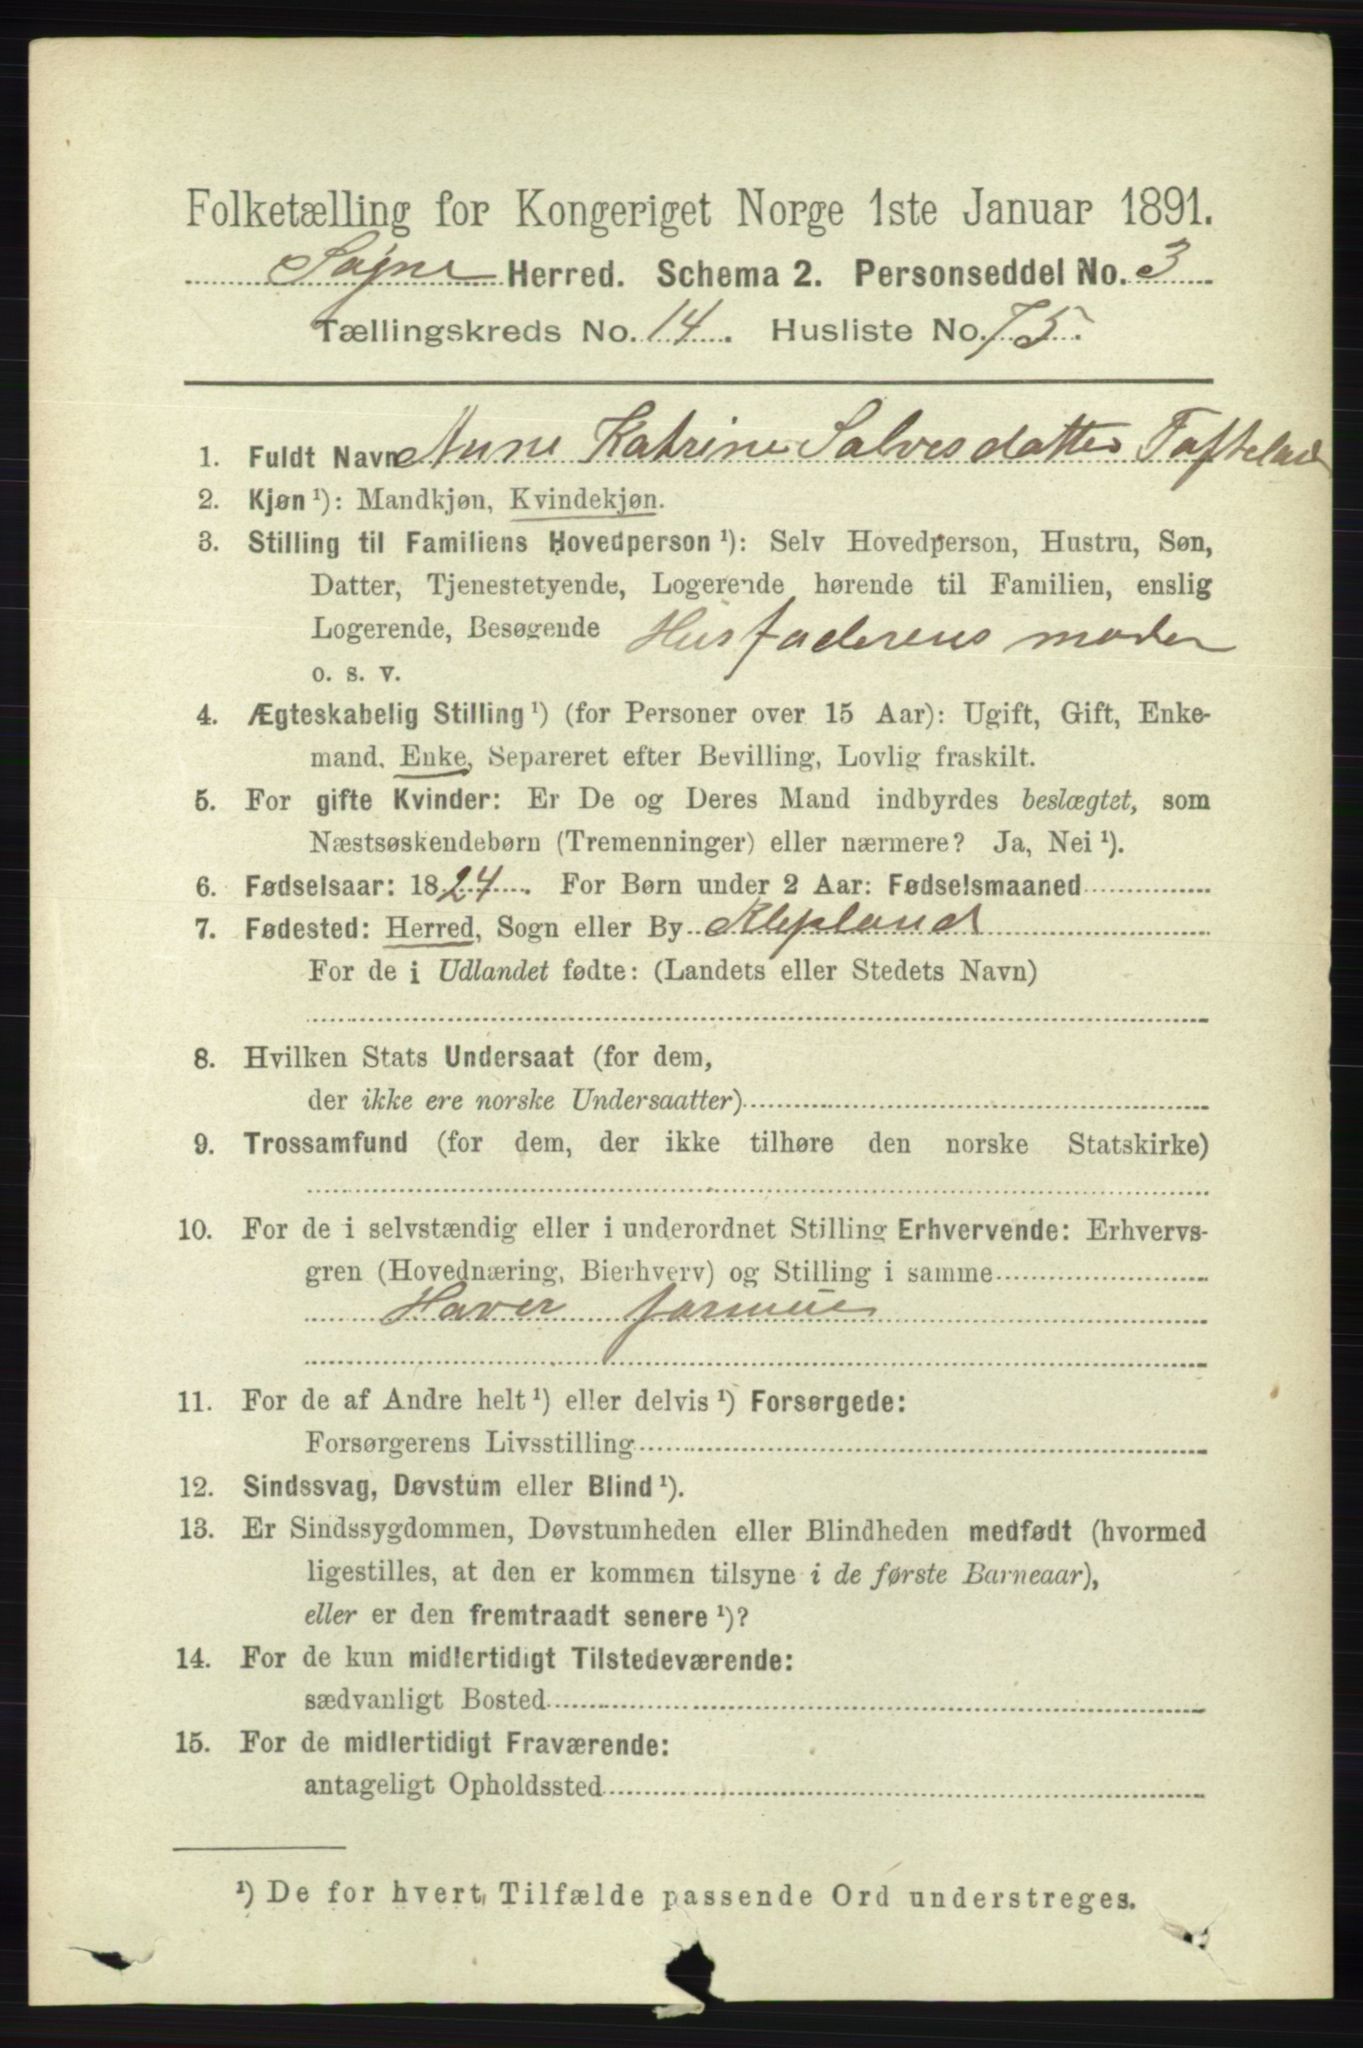 Folketælling for Kongeriget Norge 1ste Januar 1891.
Søgne Herred. Schema 2. Personseddel No. 3
Tællingskreds No. 14. Husliste No. 75.
1. Fuldt Navn Anne Katrine Salvesdatter
2. Kjøn ¹): Mandkjøn, Kvindekjøn.
3. Stilling til Familiens Hovedperson ¹): Selv Hovedperson, Hustru, Søn,
Datter, Tjenestetyende, Logerende hørende til Familien, enslig
Logerende, Besøgende Husfaderens moder
o. s. v.
4. Ægteskabelig Stilling ¹) (for Personer over 15 Aar): Ugift, Gift, Enke-
mand, Enke, Separeret efter Bevilling, Lovlig fraskilt.
5. For gifte Kvinder: Er De og Deres Mand indbyrdes beslægtet, som
Næstsøskendebørn (Tremenninger) eller nærmere? Ja, Nei ¹).
6. Fødselsaar: 1824. For Børn under 2 Aar: Fødselsmaaned
7. Fødested: Herred, Sogn eller By Klepland
For de i Udlandet fødte: (Landets eller Stedets Navn)
8. Hvilken Stats Undersaat (for dem,
der ikke ere norske Undersaatter)
9. Trossamfund (for dem, der ikke tilhøre den norske Statskirke)
10. For de i selvstændig eller i underordnet Stilling Erhvervende: Erhvervs-
gren (Hovednæring, Bierhverv) og Stilling i samme
Haver formue
11. For de af Andre helt ¹) eller delvis ¹) Forsørgede:
Forsørgerens Livsstilling
12. Sindssvag, Døvstum eller Blind ¹).
13. Er Sindssygdommen, Døvstumheden eller Blindheden medfødt (hvormed
ligestilles, at den er kommen tilsyne i de første Barneaar),
eller er den fremtraadt senere ¹)?
14. For de kun midlertidigt Tilstedeværende:
sædvanligt Bosted
15. For de midlertidigt Fraværende:
antageligt Opholdssted
¹) De for hvert Tilfælde passende Ord understreges.